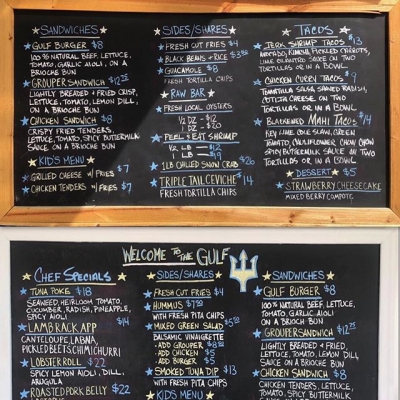 SANDWICHES
GULF BURGER $8
100% NATURAL BEEF, LETTUCE,
TOMATO, GARLIC AIOLI, ON A
BRIOCHE BUN
GROUPER SANDWICH $12.95
LIGHTLY BREADED + FRIED CRISP,
LETTUCE, TOMATO, LEMON DILL,
ON A BRIOCHE BUN
CHICKEN SANDWICH $8
CRISPY FRIED TENDERS,
LETTUCE, TOMATO, SPICY BUTTERMILK
SAUCE ON A BRIOCHE BUN
KID'S MENU
GRILLED CHEESE W/FRIES $7
CHICKEN TENDERS W/FRIES $7
SIDES/SHARES
FRESH CUT FRIES $4
BLACK BEANS + RICE
GUACAMOLE $8
FRESH TORTILLA CHIPS
RAW BAR
FRESH LOCAL OYSTERS
1/2 DZ - $12
1 DZ - $20
PEEL & EAT SHRIMP
1/2 LB - $12
1 LB - $19
1LB CHILLED SNOW CRAB $26
TRIPLE TAIL CEVICHE $14
FRESH TORTILLA CHIPS
TACOS
JERK SHRIMP TACOS $13
AVOCADO, KIMCHI, PICKLED CARROTS,
LIME CILANTRO SAUCE ON TWO
TORTILLAS OR IN A BOWL
CHICKEN CURRY TACOS $9
TOMATILLA SALSA, SHAVED RADISH,
COTIJA CHEESE ON TWO
TORTILLAS OR IN A BOWL
BLACKENED MAHI TACOS $14
KEY LIME COLE SLAW, GREEN
TOMATO, CAULIFLOWER CHOW CHOW
SPICY BUTTERMILK SAUCE ON TWO
TORTILLAS OR IN A BOWL
DESSERT $5
STRAWBERRY CHEESECAKE
MIXED BERRY COMPOTE
WELCOME TO THE GULF
CHEF SPECIALS
TUNA POKE $18
SEAWEED, HEIRLOOM TOMATO,
CUCUMBER, RADISH, PINEAPPLE,
SPICY AIOLI
LAMB RACK APP $14
CANTELOUPE, LABNA,
PICKLED BEETS, CHIMICHURRI
LOBSTER ROLL $22
SPICY LEMON AIOLI, DILL,
ARUGULA
ROASTED PORK BELLY $22
SIDES/SHARES
FRESH CUT FRIES $4
HUMMUS
WITH FRESH PITA CHIPS
MIXED GREEN SALAD
BALSAMIC VINAIGRETTE
- ADD GROUPER $8
- ADD CHICKEN $5
- ADD BURGER $5
SMOKED TUNA DIP $13
WITH FRESH PITA CHIPS
KID'S MENU
SANDWICHES
GULF BURGER $8
100% NATURAL BEEF, LETTUCE,
TOMATO, GARLIC AIOLI
ON A BRIOCHE BUN
GROUPER SANDWICH $12.95
LIGHTLY BREADED + FRIED,
LETTUCE, TOMATO, LEMON DILL
SAUCE ON A BRIOCHE BUN
CHICKEN SANDWICH $8
CHICKEN TENDERS, LETTUCE,
TOMATO, SPICY BUTTERMILK